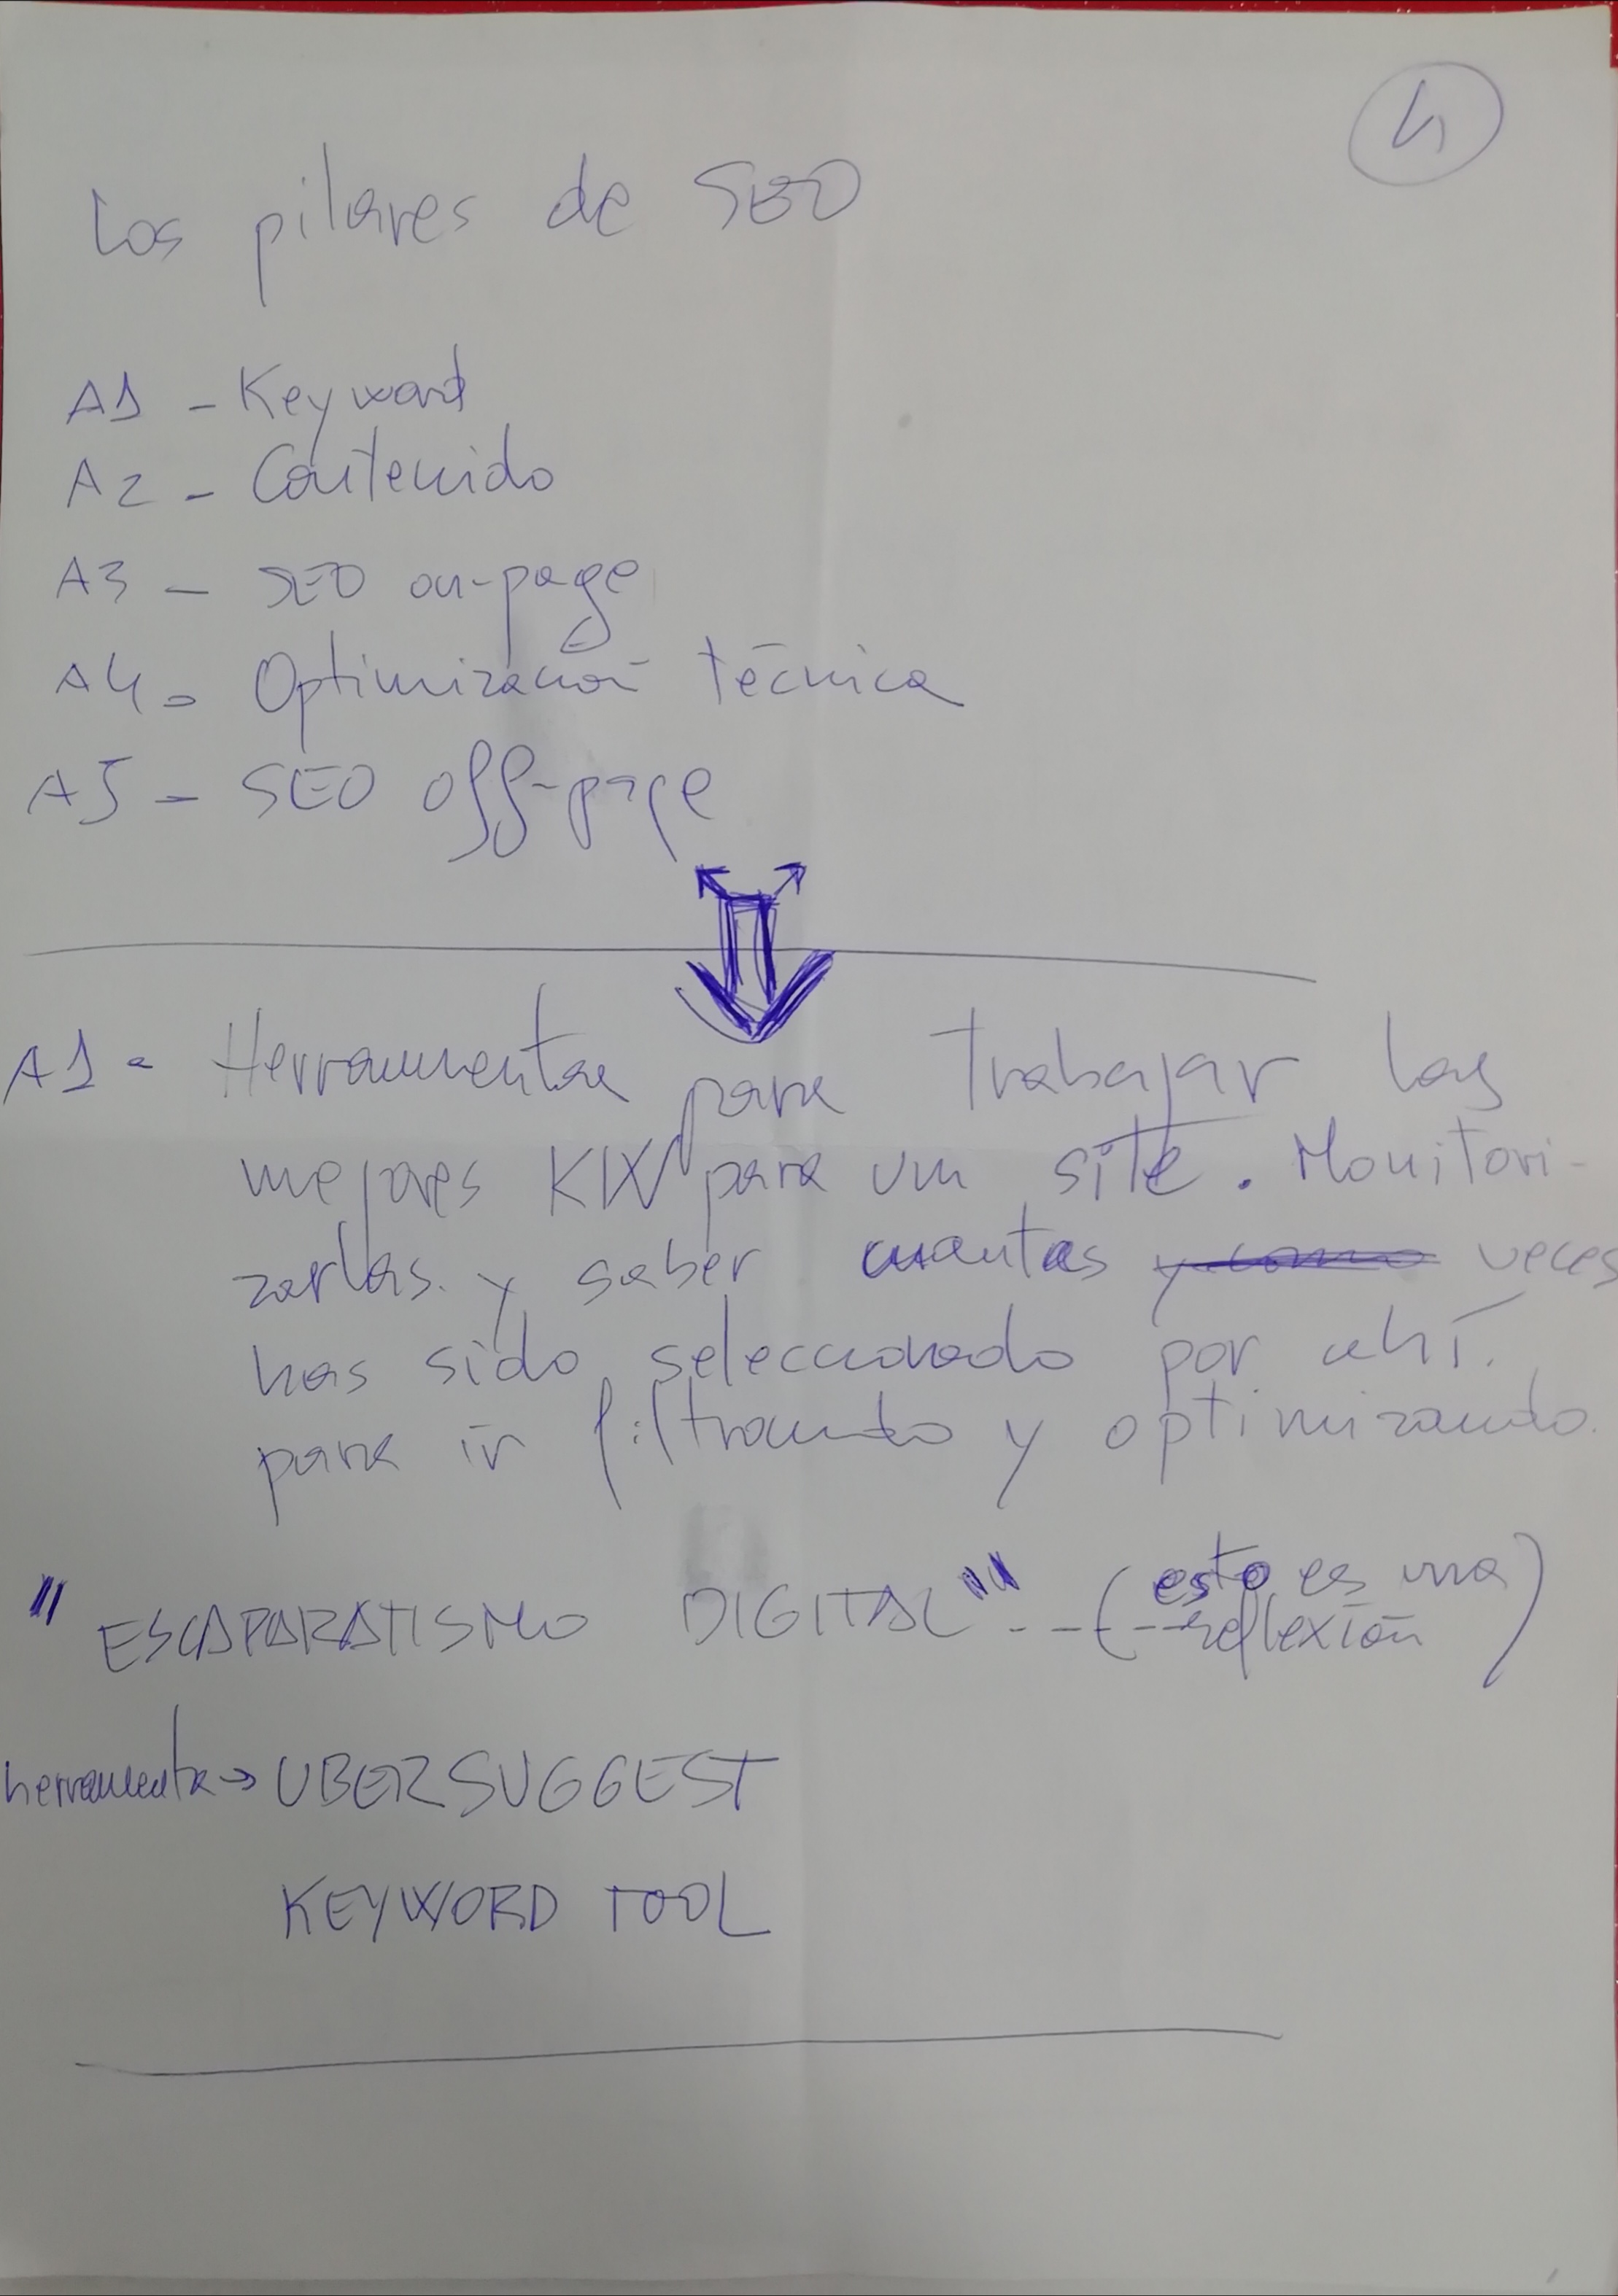 4
Los pilares de SEO
A1 - Keyword
A2 - Contenido
A3 - SEO on-page
A4 - Optimización técnica
A5 - SEO off-page
A1 - Herramienta para trabajar las
mejores KW para un site. Monitori-
zarlas. y saber cuantas y como veces
has sido seleccionado por ahí.
para ir filtrando y optimizando.
"ESCAPARATISMO DIGITAL" --- (esto es una
reflexión)
herramienta → UBERSUGGEST
KEYWORD TOOL